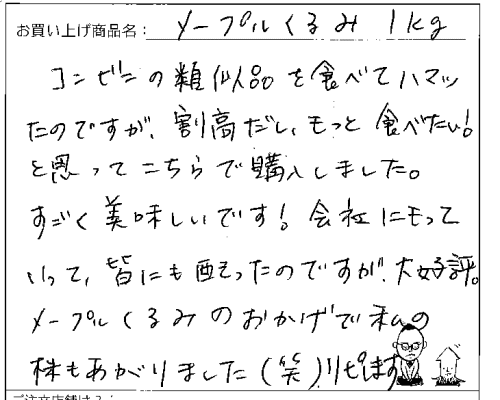 お買い上げ商品名: メープルくるみ 1kg
コンビニの類似品を食べてハマッ
たのですが、割高だし、もっと食べたい!
と思ってこちらで購入しました。
すごく美味しいです! 会社にもって
いって、皆にも配ったのですが、大好評。
メープルくるみのおかげで私の
株もあがりました(笑)リピします